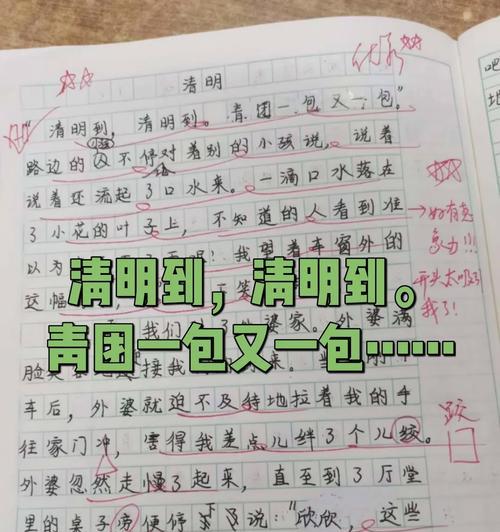 优秀
清明
"清明到，清明到。青团一包又一包。"
小孩
路边的不停对着别的小孩说，说着
说着还流起了口水来。一滴口水落在
了小花的叶子上，不知道的人看到准
以为呢！我望着车窗外的
这幅
清明到，清明到。
青团一包又一包……
我们了外婆家。外婆满
脸接我
车后，外婆就迫不及待地拉着我的手
往家门冲，害得我差点儿绊了个儿绞。
外婆忽然走慢了起来，直至到了厅堂
里的桌子旁便停了下说："欣欣，这些
好有想
象力!!!
开头太吸引
我了！
跤
吧
地